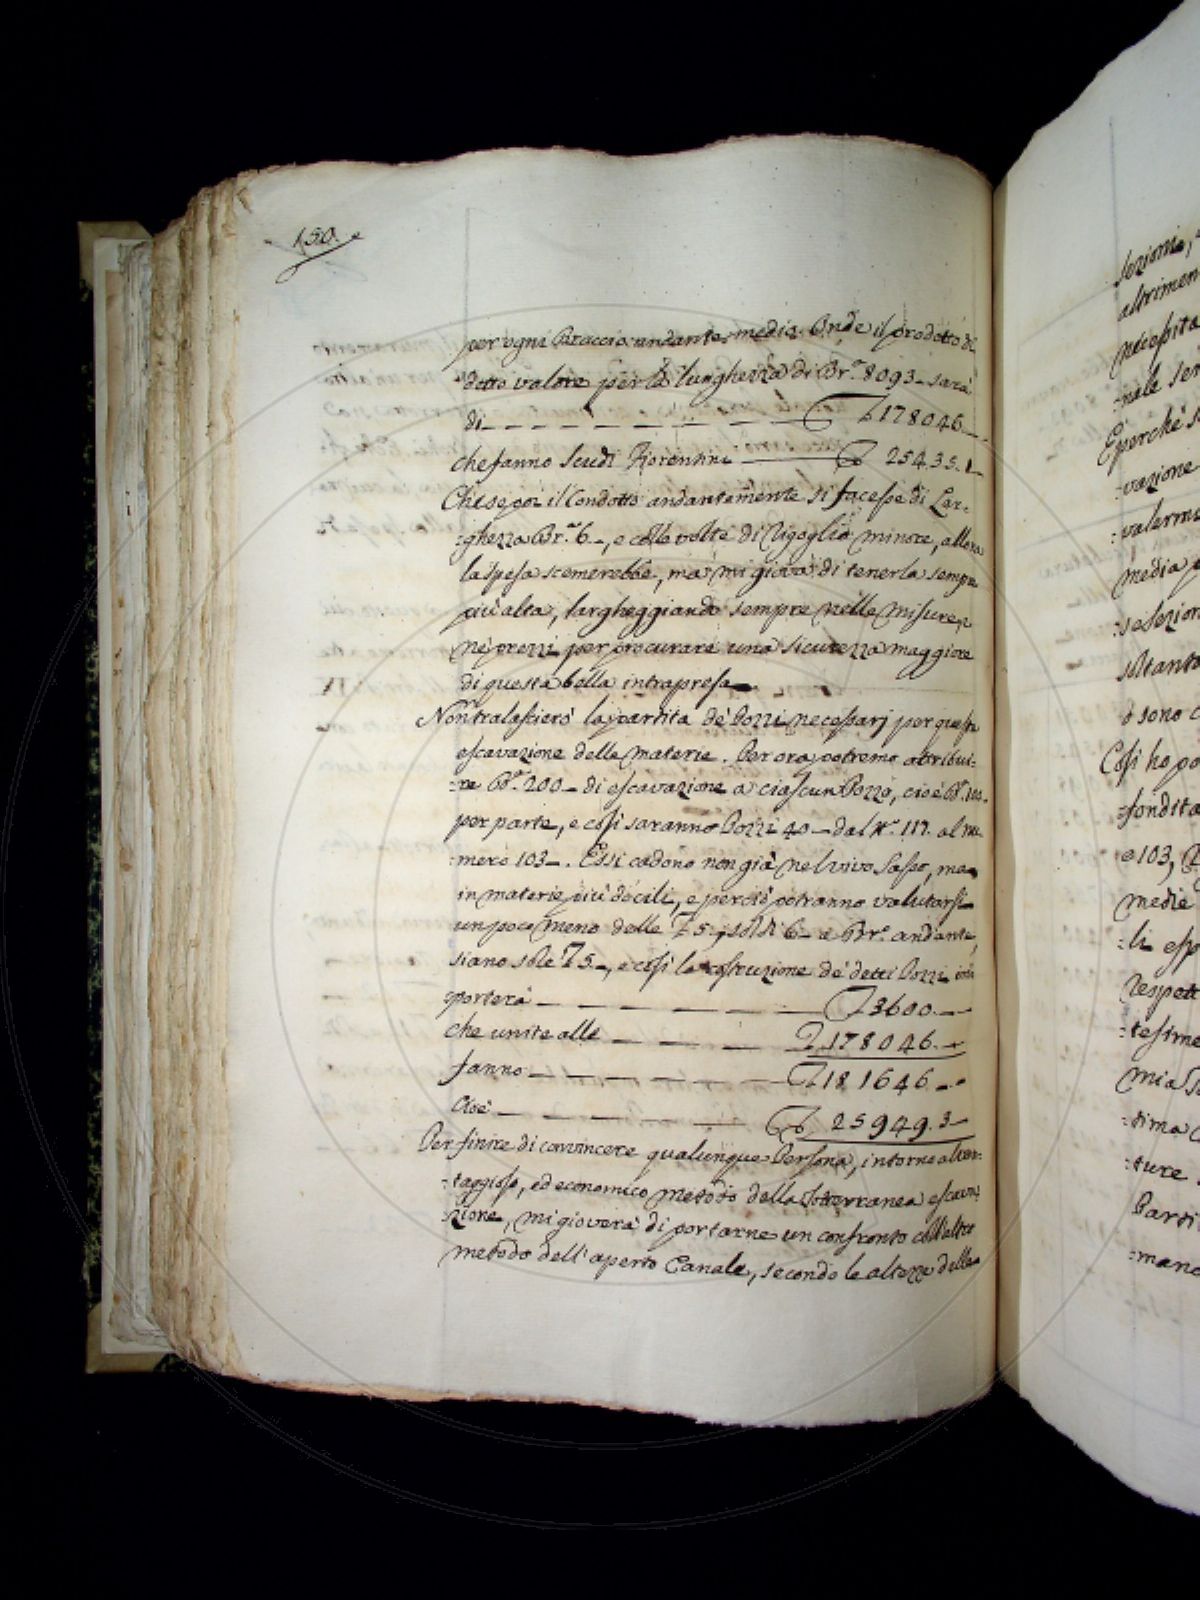 150.
per ogni Braccio andante media. Onde il prodotto di
detto valore per la lunghezza di Br.ª 8093 - sarà
di - - - - - - - £ 178046 -
che fanno Scudi Fiorentini — 25435.1 -
Che se poi il Condotto andantemente si facesse di Lar-
:ghezza Br.ª 6 -, e colle volte di Rigoglio minore, allora
la spesa scemerebbe, ma mi giova di tenerla sempe
più alta, largheggiando sempre nelle misure, e
ne' prezzi per procurare una sicurezza maggiore
di questa bella intrapresa -
Non tralascierò la partita de' Pozzi necessarj per questa
escavazione delle materie. Per ora potremo attribui-
:re Br.ª 200 - di escavazione a ciascun Pozzo, cioè Br.ª 100.
per parte, e così saranno Pozzi 40 - dal N.º 117. al nu-
:mero 103 -. Essi cadono non già nel vivo Sasso, ma
in materie più docili, e perciò potranno valutarsi
un poco meno delle £ 5., soldi 6 - a Br.º andante,
siano sole £ 5 -, e così la costruzione de' detti Pozzi im
:porterà - - - - £ 3600. -
che unite alle - - - £ 178046. -
fanno - - - - £ 181646 -
Cioè - - - - 25949.3 -
Per finire di convincere qualunque Persona, intorno al van-
:taggioso, ed economico metodo della Sotterranea escava-
:zione, mi gioverà di portarne un confronto coll'altro
metodo dell'aperto Canale, secondo le altezze delle
sezioni,
altrimen
necessita
:nale
E perchè
:vazione
media
:se sezion
soltanto
o sono
Così ho
:fondita
e 103,
medie
:li
respett
:tesime
mia
:tima
:ture
Parti
:mano